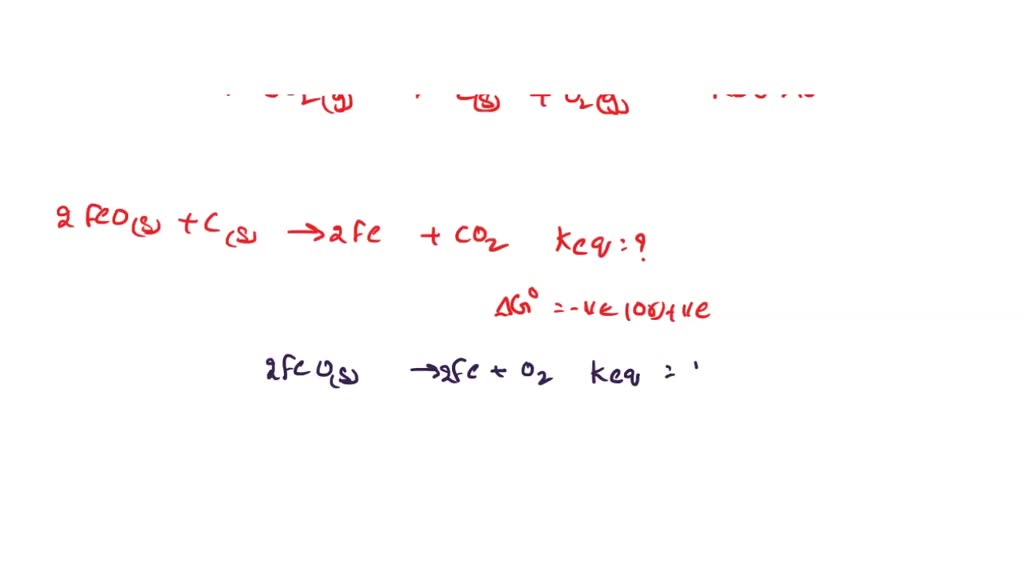 2FeO(s) + C(s) → 2Fe + CO2 Keq = ?
ΔG° = -ve (or) +ve
2FeO(s) → 2Fe + O2 Keq =